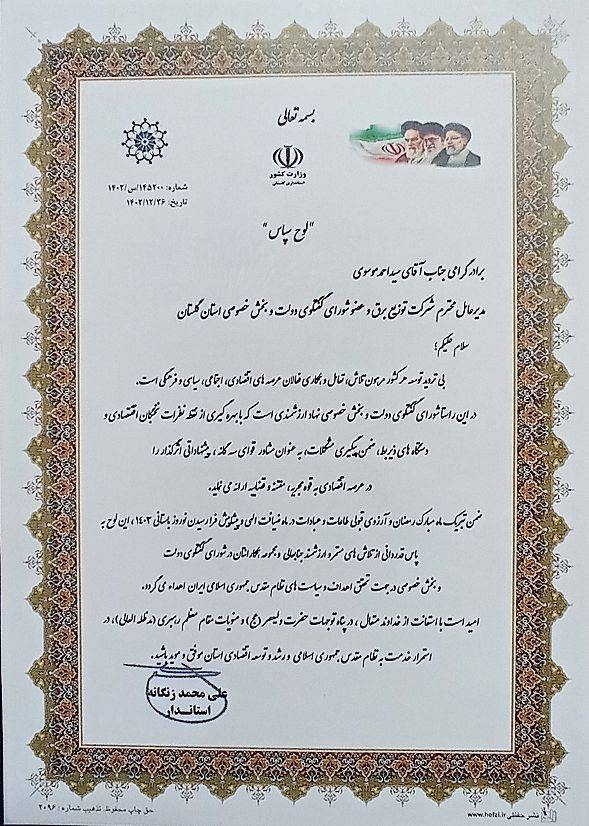 بسمه تعالی
وزارت کشور
استانداری گلستان
شماره: ۱۴۵۲۰۰/س/۱۴۰۲
تاریخ: ۱۴۰۲/۱۲/۲۶
"لوح سپاس"
برادر گرامی جناب آقای سید احمد موسوی
مدیرعامل محترم شرکت توزیع برق و عضو شورای گفتگوی دولت و بخش خصوصی استان گلستان
سلام علیکم؛
بی تردید توسعه هر کشور مرهون تلاش، تعامل و همکاری فعالان عرصه های اقتصادی، اجتماعی، سیاسی و فرهنگی است.
در این راستا شورای گفتگوی دولت و بخش خصوصی نهاد ارزشمندی است که با بهره گیری از نقطه نظرات نخبگان اقتصادی و
دستگاه های ذیربط، ضمن پیگیری مشکلات، به عنوان مشاور قوای سه گانه، پیشنهاداتی اثرگذار را
در عرصه اقتصادی به قوه مجریه، مقننه و قضاییه ارائه می نماید.
ضمن تبریک ماه مبارک رمضان و آرزوی قبولی طاعات و عبادات در ماه ضیافت الهی و پیشاپیش فرا رسیدن نوروز باستانی ۱۴۰۳، این لوح به
پاس قدردانی از تلاش های مستمر و ارزشمند جنابعالی و مجموعه همکارانتان در شورای گفتگوی دولت
و بخش خصوصی در جهت تحقق اهداف و سیاست های نظام مقدس جمهوری اسلامی ایران اهداء می گردد.
امید است با استعانت از خداوند متعال، در پناه توجهات حضرت ولیعصر (عج) و منویات مقام معظم رهبری (مدظله العالی)، در
استمرار خدمت به نظام مقدس جمهوری اسلامی و رشد و توسعه اقتصادی استان موفق و موید باشید.
علی محمد زنگانه
استاندار
حق چاپ محفوظ. تذهیب شماره: ۲۰۹۶
نشر حفظی www.hefzi.ir